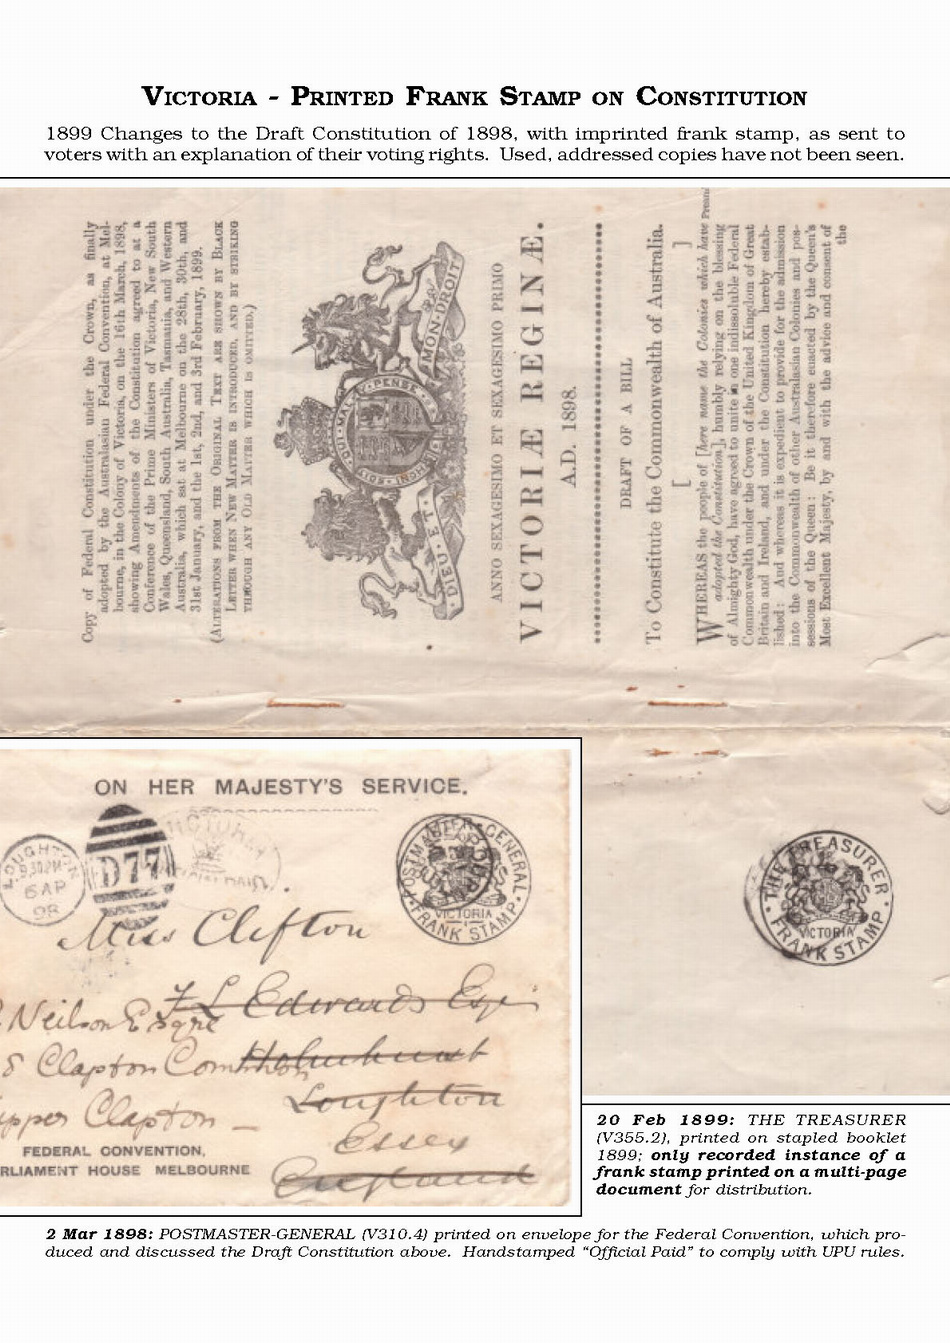 Victoria - Printed Frank Stamp on Constitution
1899 Changes to the Draft Constitution of 1898, with imprinted frank stamp, as sent to
voters with an explanation of their voting rights. Used, addressed copies have not been seen.
Copy of Federal Constitution under the Crown, as finally
adopted by the Australasian Federal Convention, at Mel-
bourne, in the Colony of Victoria, on the 16th March, 1898,
showing Amendments of the Constitution agreed to at a
Conference of the Prime Ministers of Victoria, New South
Wales, Queensland, South Australia, Tasmania, and Western
Australia, which sat at Melbourne on the 28th, 30th, and
31st January, and the 1st, 2nd, and 3rd February, 1899.
(Alterations from the Original Text are shown by Black
Letter when New Matter is introduced, and by striking
through any Old Matter which is omitted.)
HONI SOIT QUI MAL Y PENSE
DIEU ET MON DROIT
ANNO SEXAGESIMO ET SEXAGESIMO PRIMO
VICTORIÆ REGINÆ.
A.D. 1898.
DRAFT OF A BILL
To Constitute the Commonwealth of Australia.
[ ]
WHEREAS the people of [here name the Colonies which have
adopted the Constitution], humbly relying on the blessing
of Almighty God, have agreed to unite in one indissoluble Federal
Commonwealth under the Crown of the United Kingdom of Great
Britain and Ireland, and under the Constitution hereby estab-
lished: And whereas it is expedient to provide for the admission
into the Commonwealth of other Australasian Colonies and pos-
sessions of the Queen: Be it therefore enacted by the Queen's
Most Excellent Majesty, by and with the advice and consent of
the
ON HER MAJESTY'S SERVICE.
LOUGHTON
9.30PM
6 AP
98
D77
VICTORIA
POSTMASTER-GENERAL
VICTORIA
FRANK STAMP
Miss Clifton
F L Edwards Esqr
Neilson Esqre
8 Clapton Common
Holmhurst
Loughton
pper Clapton
Essex
England
FEDERAL CONVENTION,
RLIAMENT HOUSE MELBOURNE
THE TREASURER
VICTORIA
FRANK STAMP
20 Feb 1899: THE TREASURER
(V355.2), printed on stapled booklet
1899; only recorded instance of a
frank stamp printed on a multi-page
document for distribution.
2 Mar 1898: POSTMASTER-GENERAL (V310.4) printed on envelope for the Federal Convention, which pro-
duced and discussed the Draft Constitution above. Handstamped "Official Paid" to comply with UPU rules.